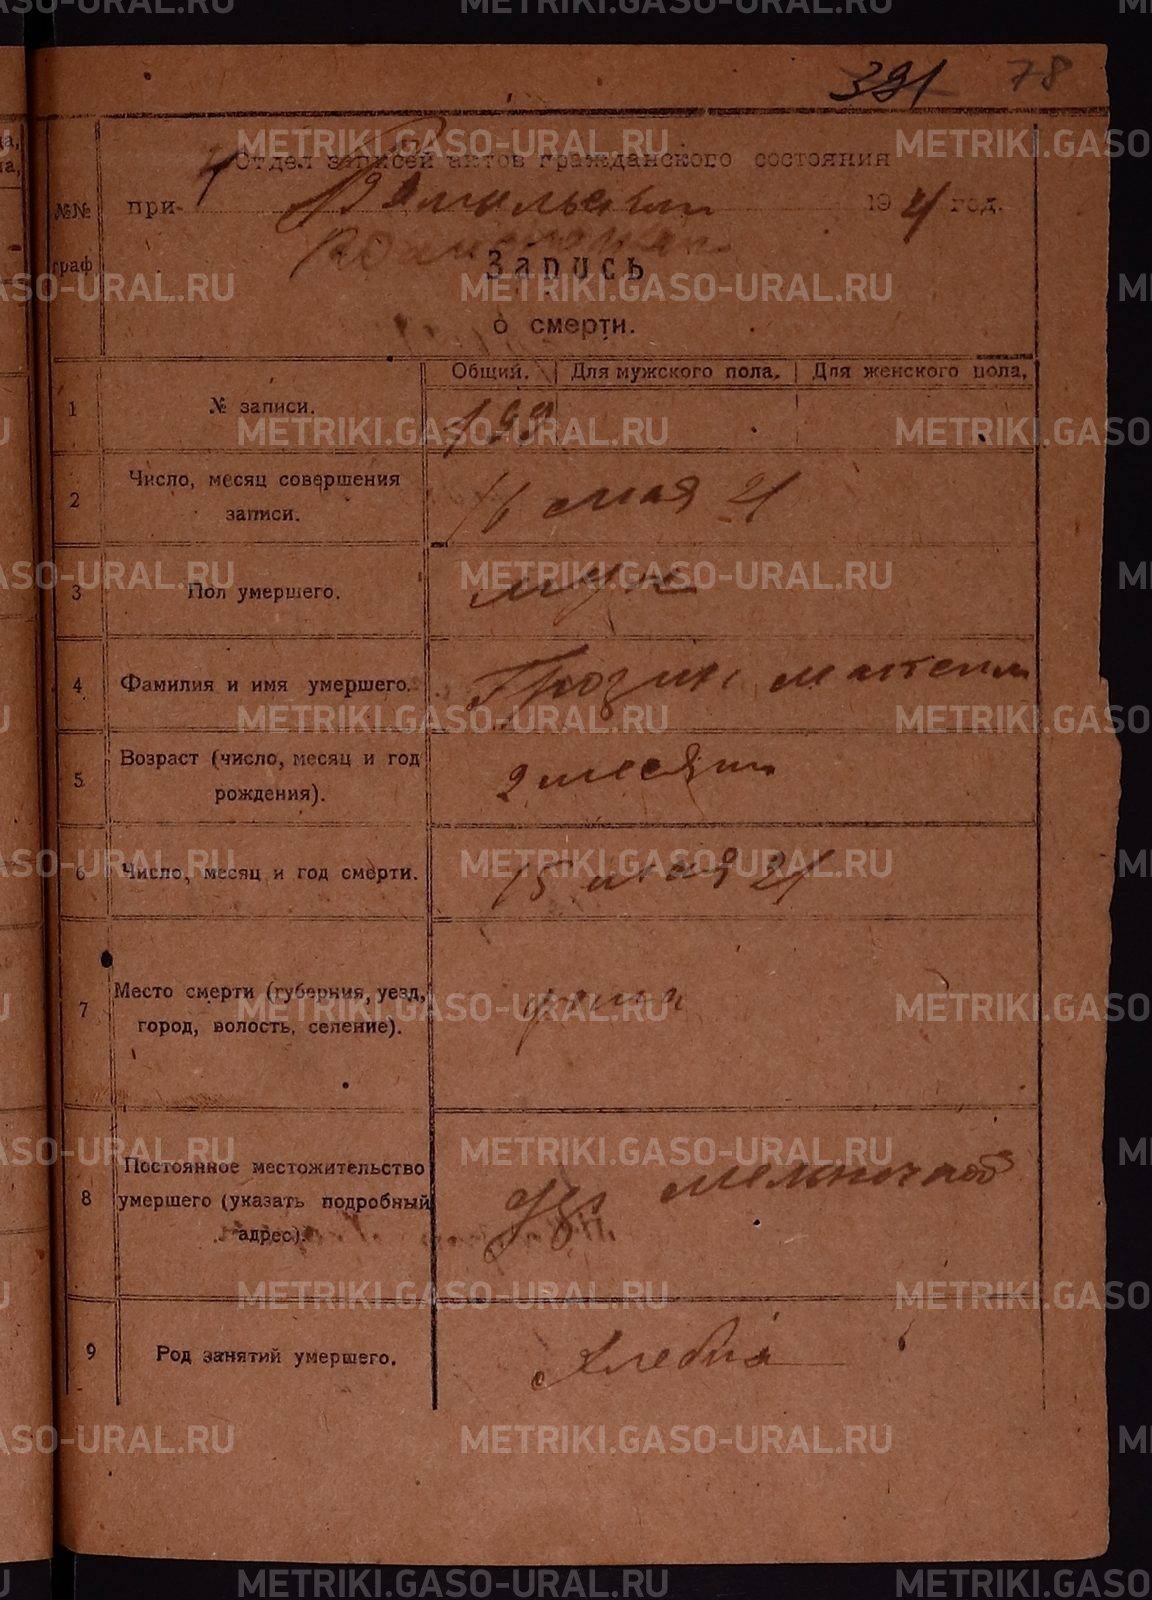 391 78
Отдел записей актов гражданского состояния
при 1921 год.
№№ граф
Запись
о смерти.
Общий. Для мужского пола. Для женского пола.
1 № записи. 199
2 Число, месяц совершения записи. 16 мая 21
3 Пол умершего. муж
4 Фамилия и имя умершего. Грозин
5 Возраст (число, месяц и год рождения). 2 месяц
6 Число, месяц и год смерти. 15 мая 21
7 Место смерти (губерния, уезд, город, волость, селение).
8 Постоянное местожительство умершего (указать подробный адрес). Мельничной
9 Род занятий умершего.
METRIKI.GASO-URAL.RU